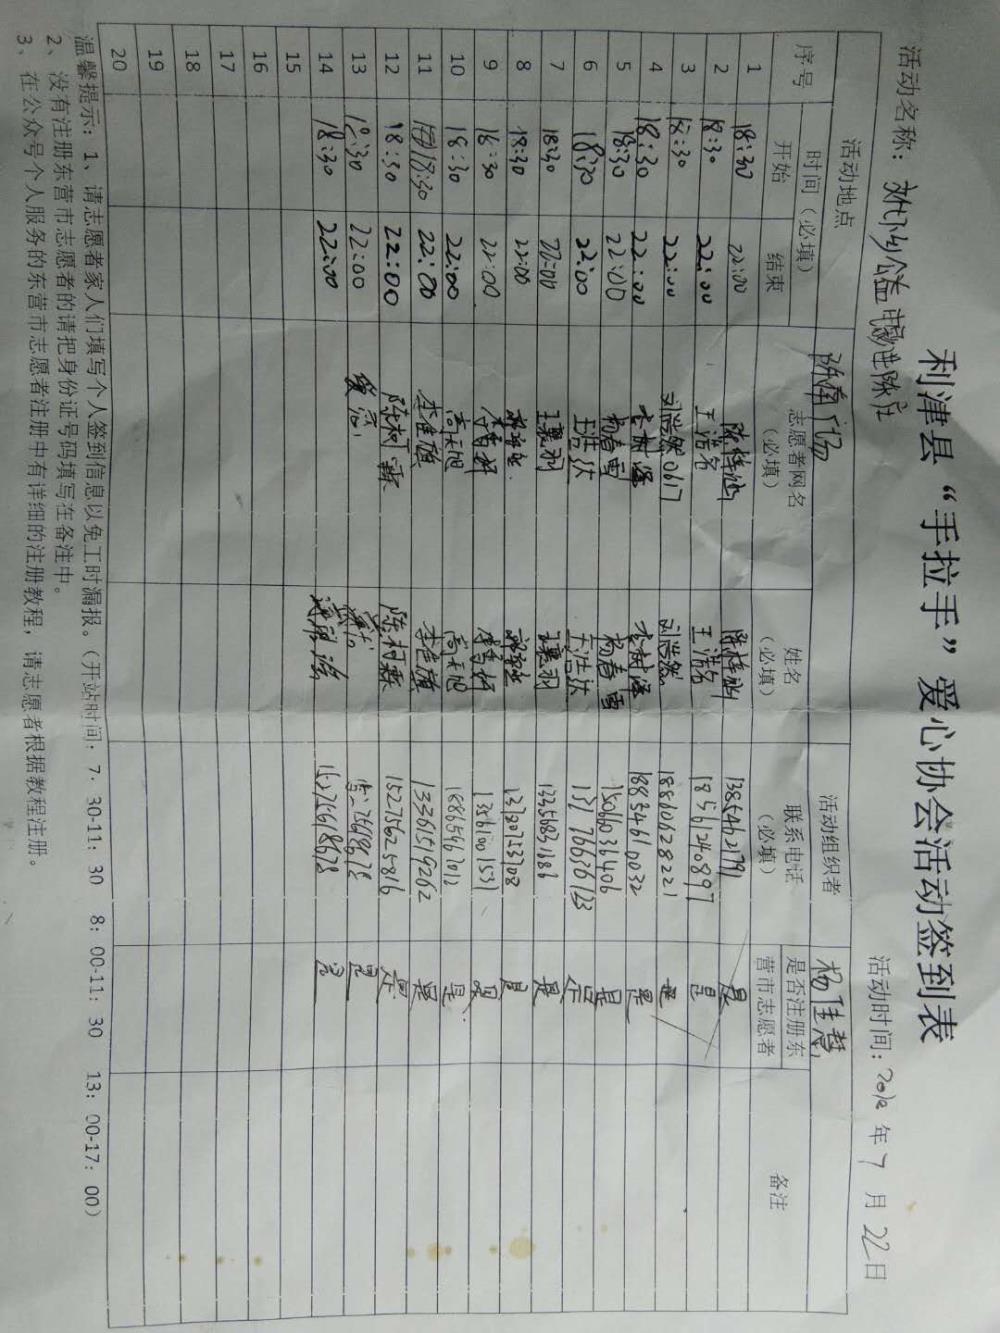 利津县“手拉手”爱心协会活动签到表
活动名称： 公益电影进陈庄 活动时间： 年 7 月 22 日
活动地点 陈庄广场 活动组织者 杨佳慧
序号 时间（必填） 志愿者网名（必填） 姓名（必填） 联系电话（必填） 是否注册东营市志愿者 备注
开始 结束
1 18:30 22:00 是
2 18:30 22:00 王浩名 王浩名 18561240897 是
3 18:30 22:00 刘浩然0617 刘浩然 18810628221 是
4 18:30 22:00 李树泽 李树泽 18854610032 是
5 18:30 22:00 杨春雷 杨春雷 15066031406 是
6 18:30 22:00 王浩达 王浩达 13176636123 是
7 18:30 22:00 13356831686 是
8 18:30 22:00 13780753708 是
9 18:30 22:00 13561001531 是
10 18:30 22:00 高天旭 高天旭 18865667012 是
11 18:30 22:00 李佳旗 李佳旗 13361519262 是
12 18:30 22:00 陈柯霖 陈柯霖 15275625816 是
13 18:30 22:00 是
14 18:30 22:00 15275618678 是
15
16
17
18
19
20
温馨提示：1、请志愿者家人们填写个人签到信息以免工时漏报。（开站时间：7：30-11：30 8：00-11：30 13：00-17：00）
2、没有注册东营市志愿者的请把身份证号码填写在备注中。
3、在公众号个人服务的东营市志愿者注册中有详细的注册教程，请志愿者根据教程注册。